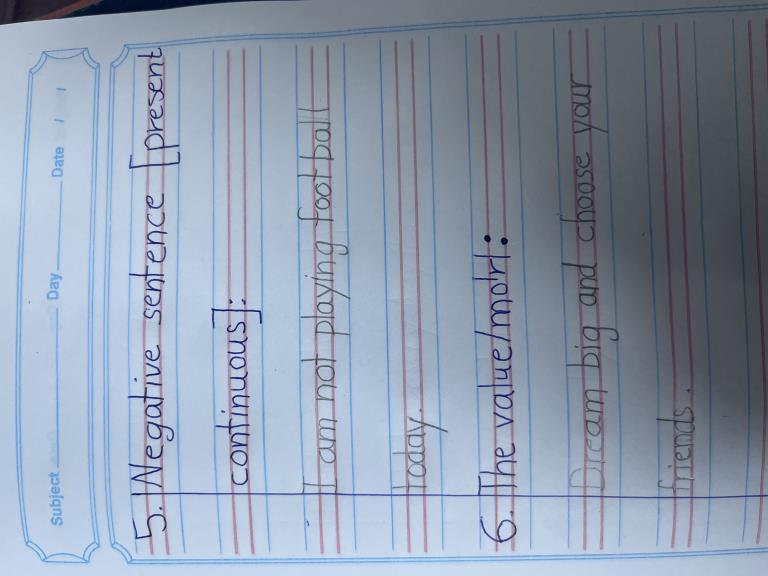 Subject Day Date / /
5. Negative sentence [present
continuous]:
I am not playing football
Today.
6. The value/morl:
Dream big and choose your
friends.